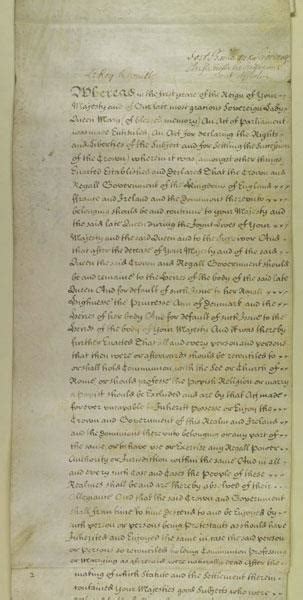 Le Roy le veult
Whereas in the first yeare of the Reign of Your
Majesty and of Our late most gracious Sovereign Lady
Queen Mary of blessed memory An Act of Parliament
was made Entituled An Act for declaring the Rights
and Liberties of the Subject and for Setling the Succession
of the Crown wherein it was amongst other things
Enacted Established and Declared That the Crown and
Regall Government of the Kingdoms of England
France and Ireland and the Dominions thereunto
belonging should be and continue to your Majesty and
the said late Queen during the Joynt Lives of Your
Majesty and the said Queen and to the Survivor And
that after the decease of Your Majesty and of the said
Queen the said Crown and Regall Government should
be and remaine to the Heires of the body of the said late
Queen And for default of such Issue to her Royall
Highnesse the Princesse Ann of Denmark and the
Heires of her body And for default of such Issue to the
Heires of the body of Your Majesty And it was thereby
further Enacted That all and every person and persons
that then were or afterwards should be reconciled to
or shall hold Communion with the See or Church of
Rome or should professe the Popish Religion or marry
a Papist should be Excluded and are by that Act made
for ever uncapable to Inheritt Possesse or Enjoy the
Crown and Government of this Realm and Ireland
and the Dominions thereunto belonging or any part of
the same or to have use or Exercise any Regall Power
Authority or Jurisdiction within the same And in all
and every such Case and Cases the People of these
Realmes shall be and are thereby absolved of their
Allegiance And that the said Crown and Government
shall from time to time descend to and be Enjoyed by
such person or persons being Protestants as should have
Inherited and Enjoyed the same in case the said person
or Persons so reconciled holding Communion Professing
or Marrying as aforesaid were naturally dead After the
2
making of which Statute and the Settlement therein
contained Your Majesties good Subjects who were